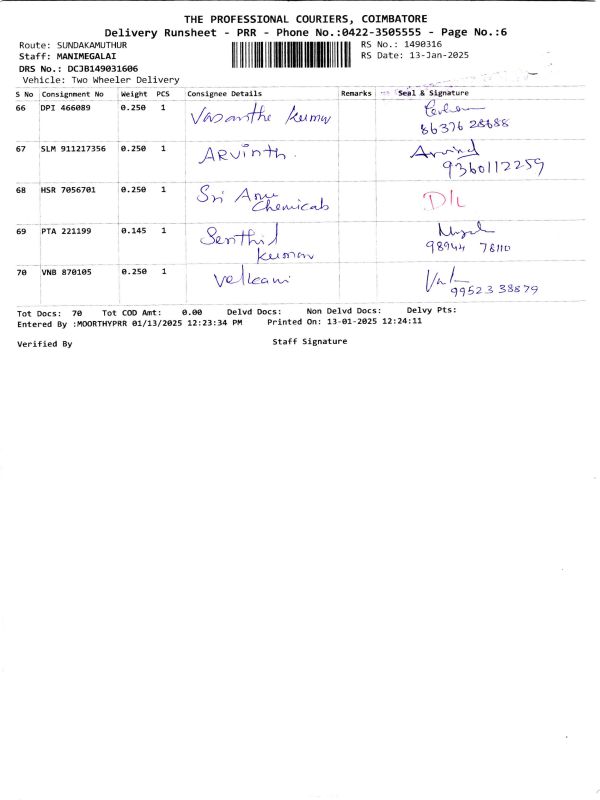 THE PROFESSIONAL COURIERS, COIMBATORE
Delivery Runsheet - PRR - Phone No.:0422-3505555 - Page No.:6
Route: SUNDAKAMUTHUR RS No.: 1490316
Staff: MANIMEGALAI RS Date: 13-Jan-2025
DRS No.: DCJB149031606
Vehicle: Two Wheeler Delivery
S No Consignment No Weight PCS Consignee Details Remarks Seal & Signature
66 DPI 466089 0.250 1 Vasantha Kumar
86376 28688
67 SLM 911217356 0.250 1 ARVinth. Arvind
9360112259
68 HSR 7056701 0.250 1 Sri Anu
Chemicals D/L
69 PTA 221199 0.145 1 Senthil
Kumar 98944 78110
70 VNB 870105 0.250 1 Velkani
99523 38879
Tot Docs: 70 Tot COD Amt: 0.00 Delvd Docs: Non Delvd Docs: Delvy Pts:
Entered By :MOORTHYPRR 01/13/2025 12:23:34 PM Printed On: 13-01-2025 12:24:11
Verified By Staff Signature